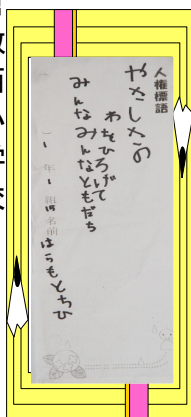 人権標語
やさしさの
わをひろげて
みんなみんなともだち
1年1組名前はらもとちひ